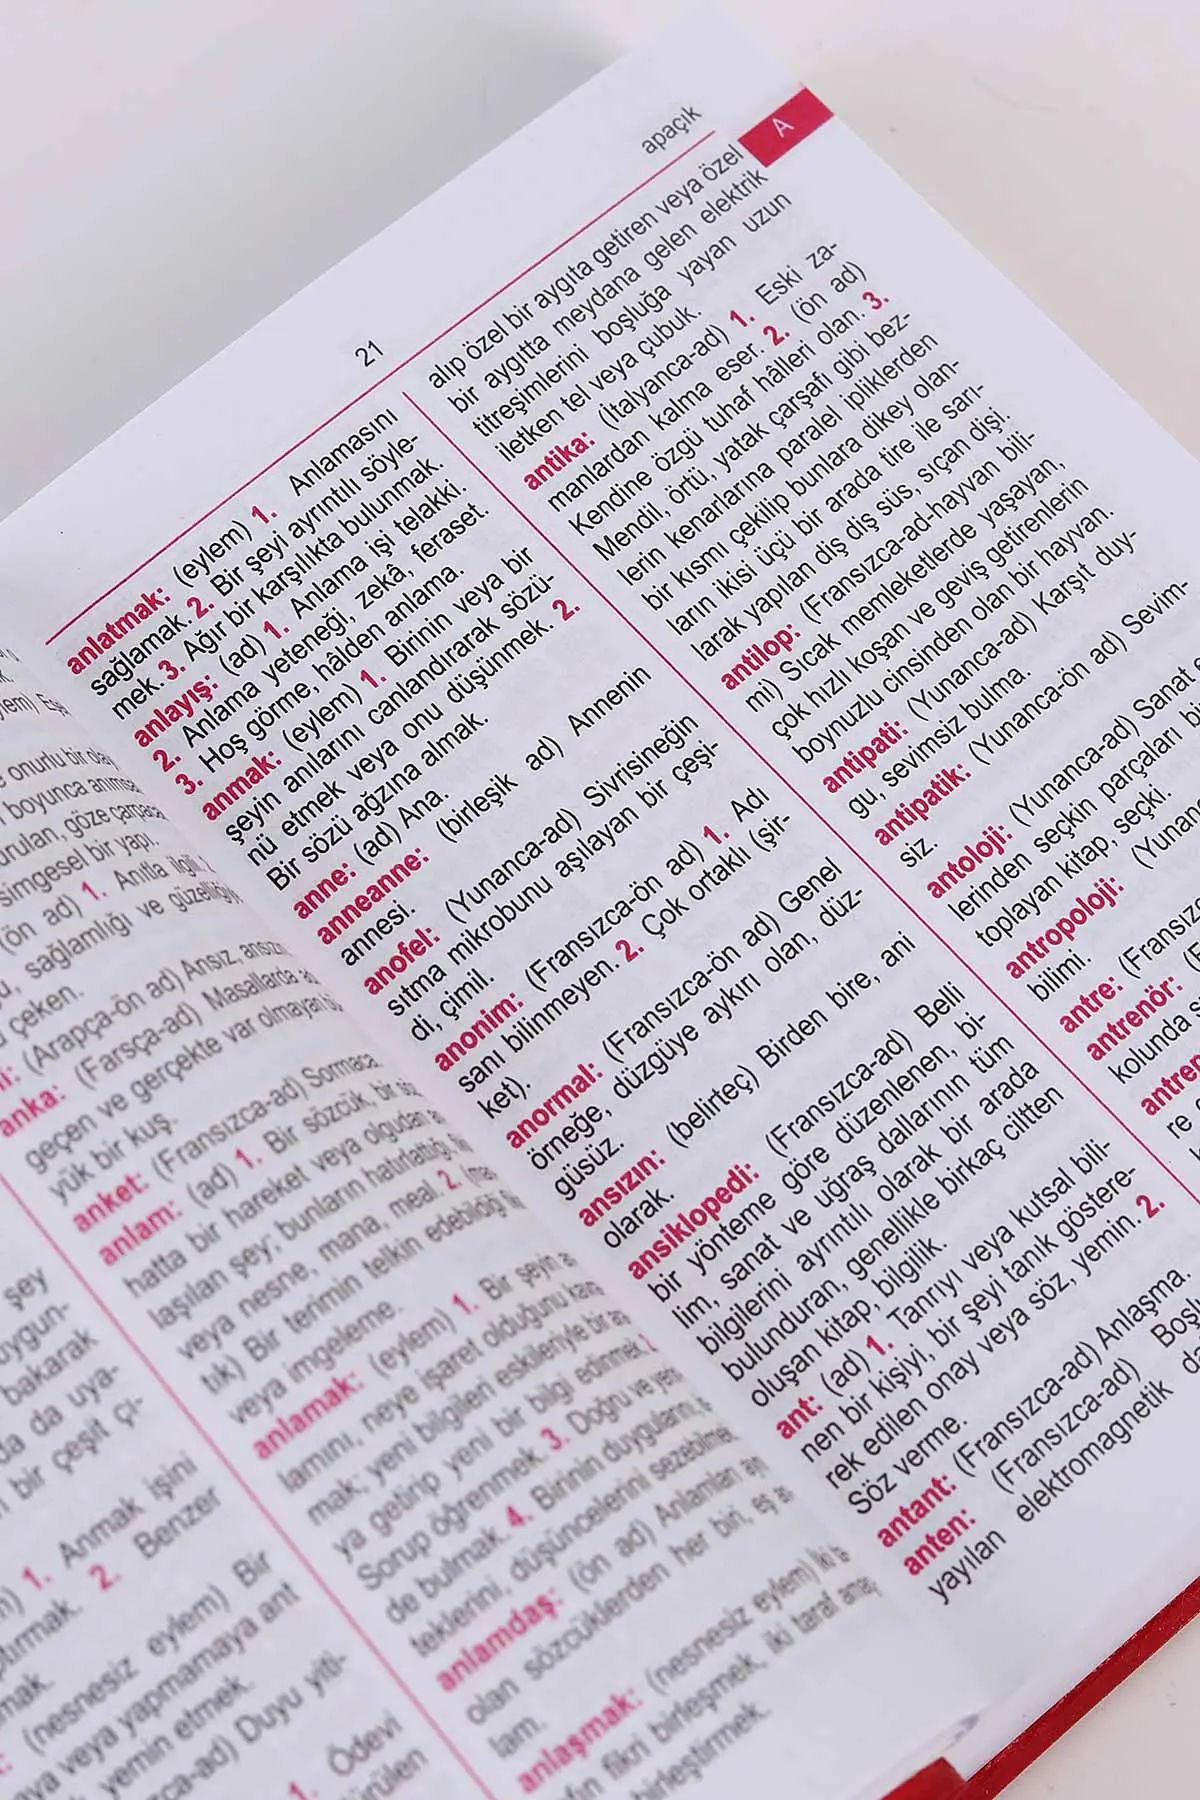 şey
uygun-
bakarak
da da uya-
bir çeşit çi-
1. Anmak işini
2. Benzer
(nesnesiz eylem) Bir
veya yapmamaya ant
yemin etmek.
Duyu yiti-
1. Ödevi
onurlu bir
boyunca
göze
simgesel bir yapı.
(ön ad) 1. Anıtla ilgili,
sağlamlığı ve
çeken.
(Arapça-ön ad) Ansız,
anka: (Farsça-ad) Masallarda
geçen ve gerçekte var olmayan
yük bir kuş.
anket: (Fransızca-ad) Sormaca.
anlam: (ad) 1. Bir sözcük, bir
hatta bir hareket veya olgudan
laşılan şey; bunların hatırlattığı,
veya nesne, mana, meal. 2.
tık) Bir terimin telkin edebildiği
veya imgeleme.
anlamak: (eylem) 1. Bir şeyin
lamını, neye işaret olduğunu
mak; yeni bilgileri eskileriyle bir
ya getirip yeni bir bilgi edinmek.
Sorup öğrenmek. 3. Doğru ve
de bulmak. 4. Birinin duygularını,
teklerini, düşüncelerini
anlamdaş: (ön ad) Anlamları
olan sözcüklerden her biri, eş
lam.
anlaşmak: (nesnesiz eylem) İki
fikri birleşmek, iki taraf
birleştirmek.
21
apaçık
A
anlatmak: (eylem) 1. Anlamasını
sağlamak. 2. Bir şeyi ayrıntılı söyle-
mek. 3. Ağır bir karşılıkta bulunmak.
anlayış: (ad) 1. Anlama işi telakki.
2. Anlama yeteneği, zekâ, feraset.
3. Hoş görme, hâlden anlama.
anmak: (eylem) 1. Birinin veya bir
şeyin anılarını canlandırarak sözü-
nü etmek veya onu düşünmek. 2.
Bir sözü ağzına almak.
anne: (ad) Ana.
anneanne: (birleşik ad) Annenin
annesi.
anofel: (Yunanca-ad) Sivrisineğin
sıtma mikrobunu aşılayan bir çeşi-
di, çimil.
anonim: (Fransızca-ön ad) 1. Adı
sanı bilinmeyen. 2. Çok ortaklı (şir-
ket).
anormal: (Fransızca-ön ad) Genel
örneğe, düzgüye aykırı olan, düz-
güsüz.
ansızın: (belirteç) Birden bire, ani
olarak.
ansiklopedi: (Fransızca-ad) Belli
bir yönteme göre düzenlenen, bi-
lim, sanat ve uğraş dallarının tüm
bilgilerini ayrıntılı olarak bir arada
bulunduran, genellikle birkaç ciltten
oluşan kitap, bilgilik.
ant: (ad) 1. Tanrıyı veya kutsal bili-
nen bir kişiyi, bir şeyi tanık göstere-
rek edilen onay veya söz, yemin. 2.
Söz verme.
antant: (Fransızca-ad) Anlaşma.
anten: (Fransızca-ad)
yayılan elektromagnetik
alıp özel bir aygıta getiren veya özel
bir aygıtta meydana gelen elektrik
titreşimlerini boşluğa yayan uzun
iletken tel veya çubuk.
antika: (İtalyanca-ad) 1. Eski za-
manlardan kalma eser. 2. (ön ad)
Kendine özgü tuhaf hâlleri olan. 3.
Mendil, örtü, yatak çarşafı gibi bez-
lerin kenarlarına paralel ipliklerden
bir kısmı çekilip bunlara dikey olan-
ların ikisi üçü bir arada tire ile sarı-
larak yapılan diş diş süs, sıçan dişi.
antilop: (Fransızca-ad-hayvan bili-
mi) Sıcak memleketlerde yaşayan,
çok hızlı koşan ve geviş getirenlerin
boynuzlu cinsinden olan bir hayvan.
antipati: (Yunanca-ad) Karşıt duy-
gu, sevimsiz bulma.
antipatik: (Yunanca-ön ad) Sevim-
siz.
antoloji: (Yunanca-ad) Sanat
lerinden seçkin parçaları
toplayan kitap, seçki.
antropoloji:
bilimi.
antre:
antrenör:
kolunda